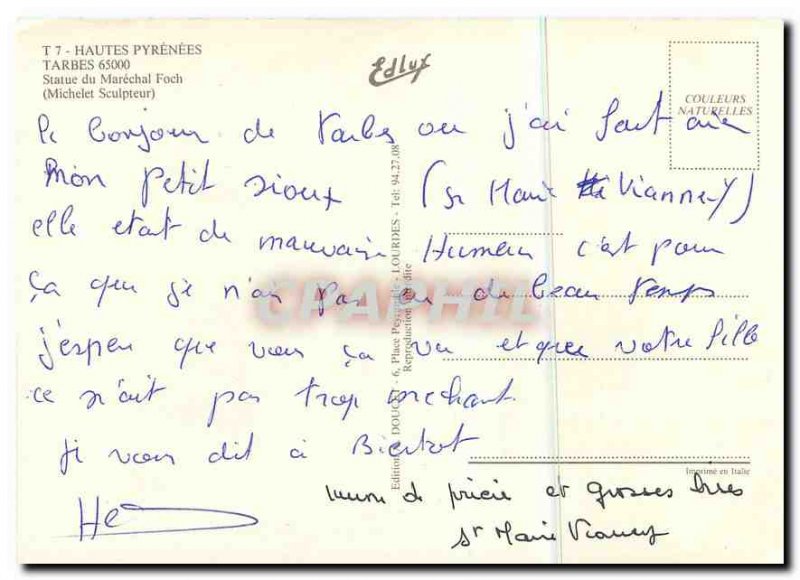 T 7 - HAUTES PYRÉNÉES
TARBES 65000
Statue du Maréchal Foch
(Michelet Sculpteur)
Edlux
COULEURS
NATURELLES
le bonjour de Tarbes ou j'ai
mon petit sioux (Sr Marie Vianney)
elle etait de mauvaise Humeur c'est pour
ça que je n'ai pas eu du beau temps
j'espeu que vous ça va et que votre fille
ce n'ait pas trop mechant
Ji vous dit à Bientot
He
union de prière et grosses bises
Sr Marie Vianney
Editions DOUCET - 6, Place Peyramale - LOURDES - Tel: 94.27.08
Reproduction interdite
Imprimé en Italie
CPAPHIL